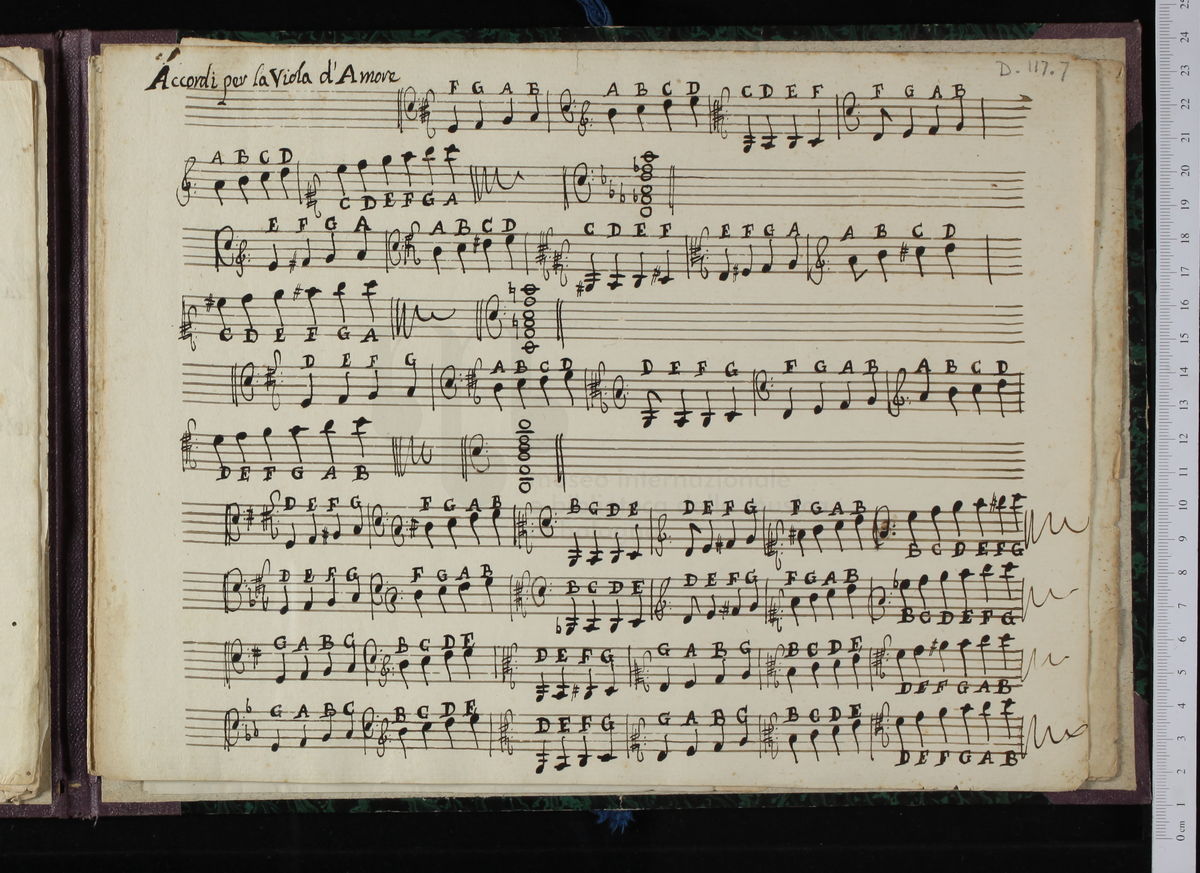 Accordi per la Viola d'Amore
D. 117.7
F G A B A B C D C D E F F G A B
A B C D C D E F G A
E F G A A B C D C D E F E F G A A B C D
C D E F G A
D E F G A B C D D E F G F G A B A B C D
D E F G A B
museo internazionale
D E F G F G A B B C D E D E F G F G A B B C D E F G
D E F G F G A B B C D E D E F G F G A B B C D E F G
G A B C B C D E D E F G G A B C B C D E D E F G A B
G A B C B C D E D E F G G A B C B C D E D E F G A B
25
24
23
22
21
20
19
18
17
16
15
14
13
12
11
10
9
8
7
6
5
4
3
2
1
0 cm